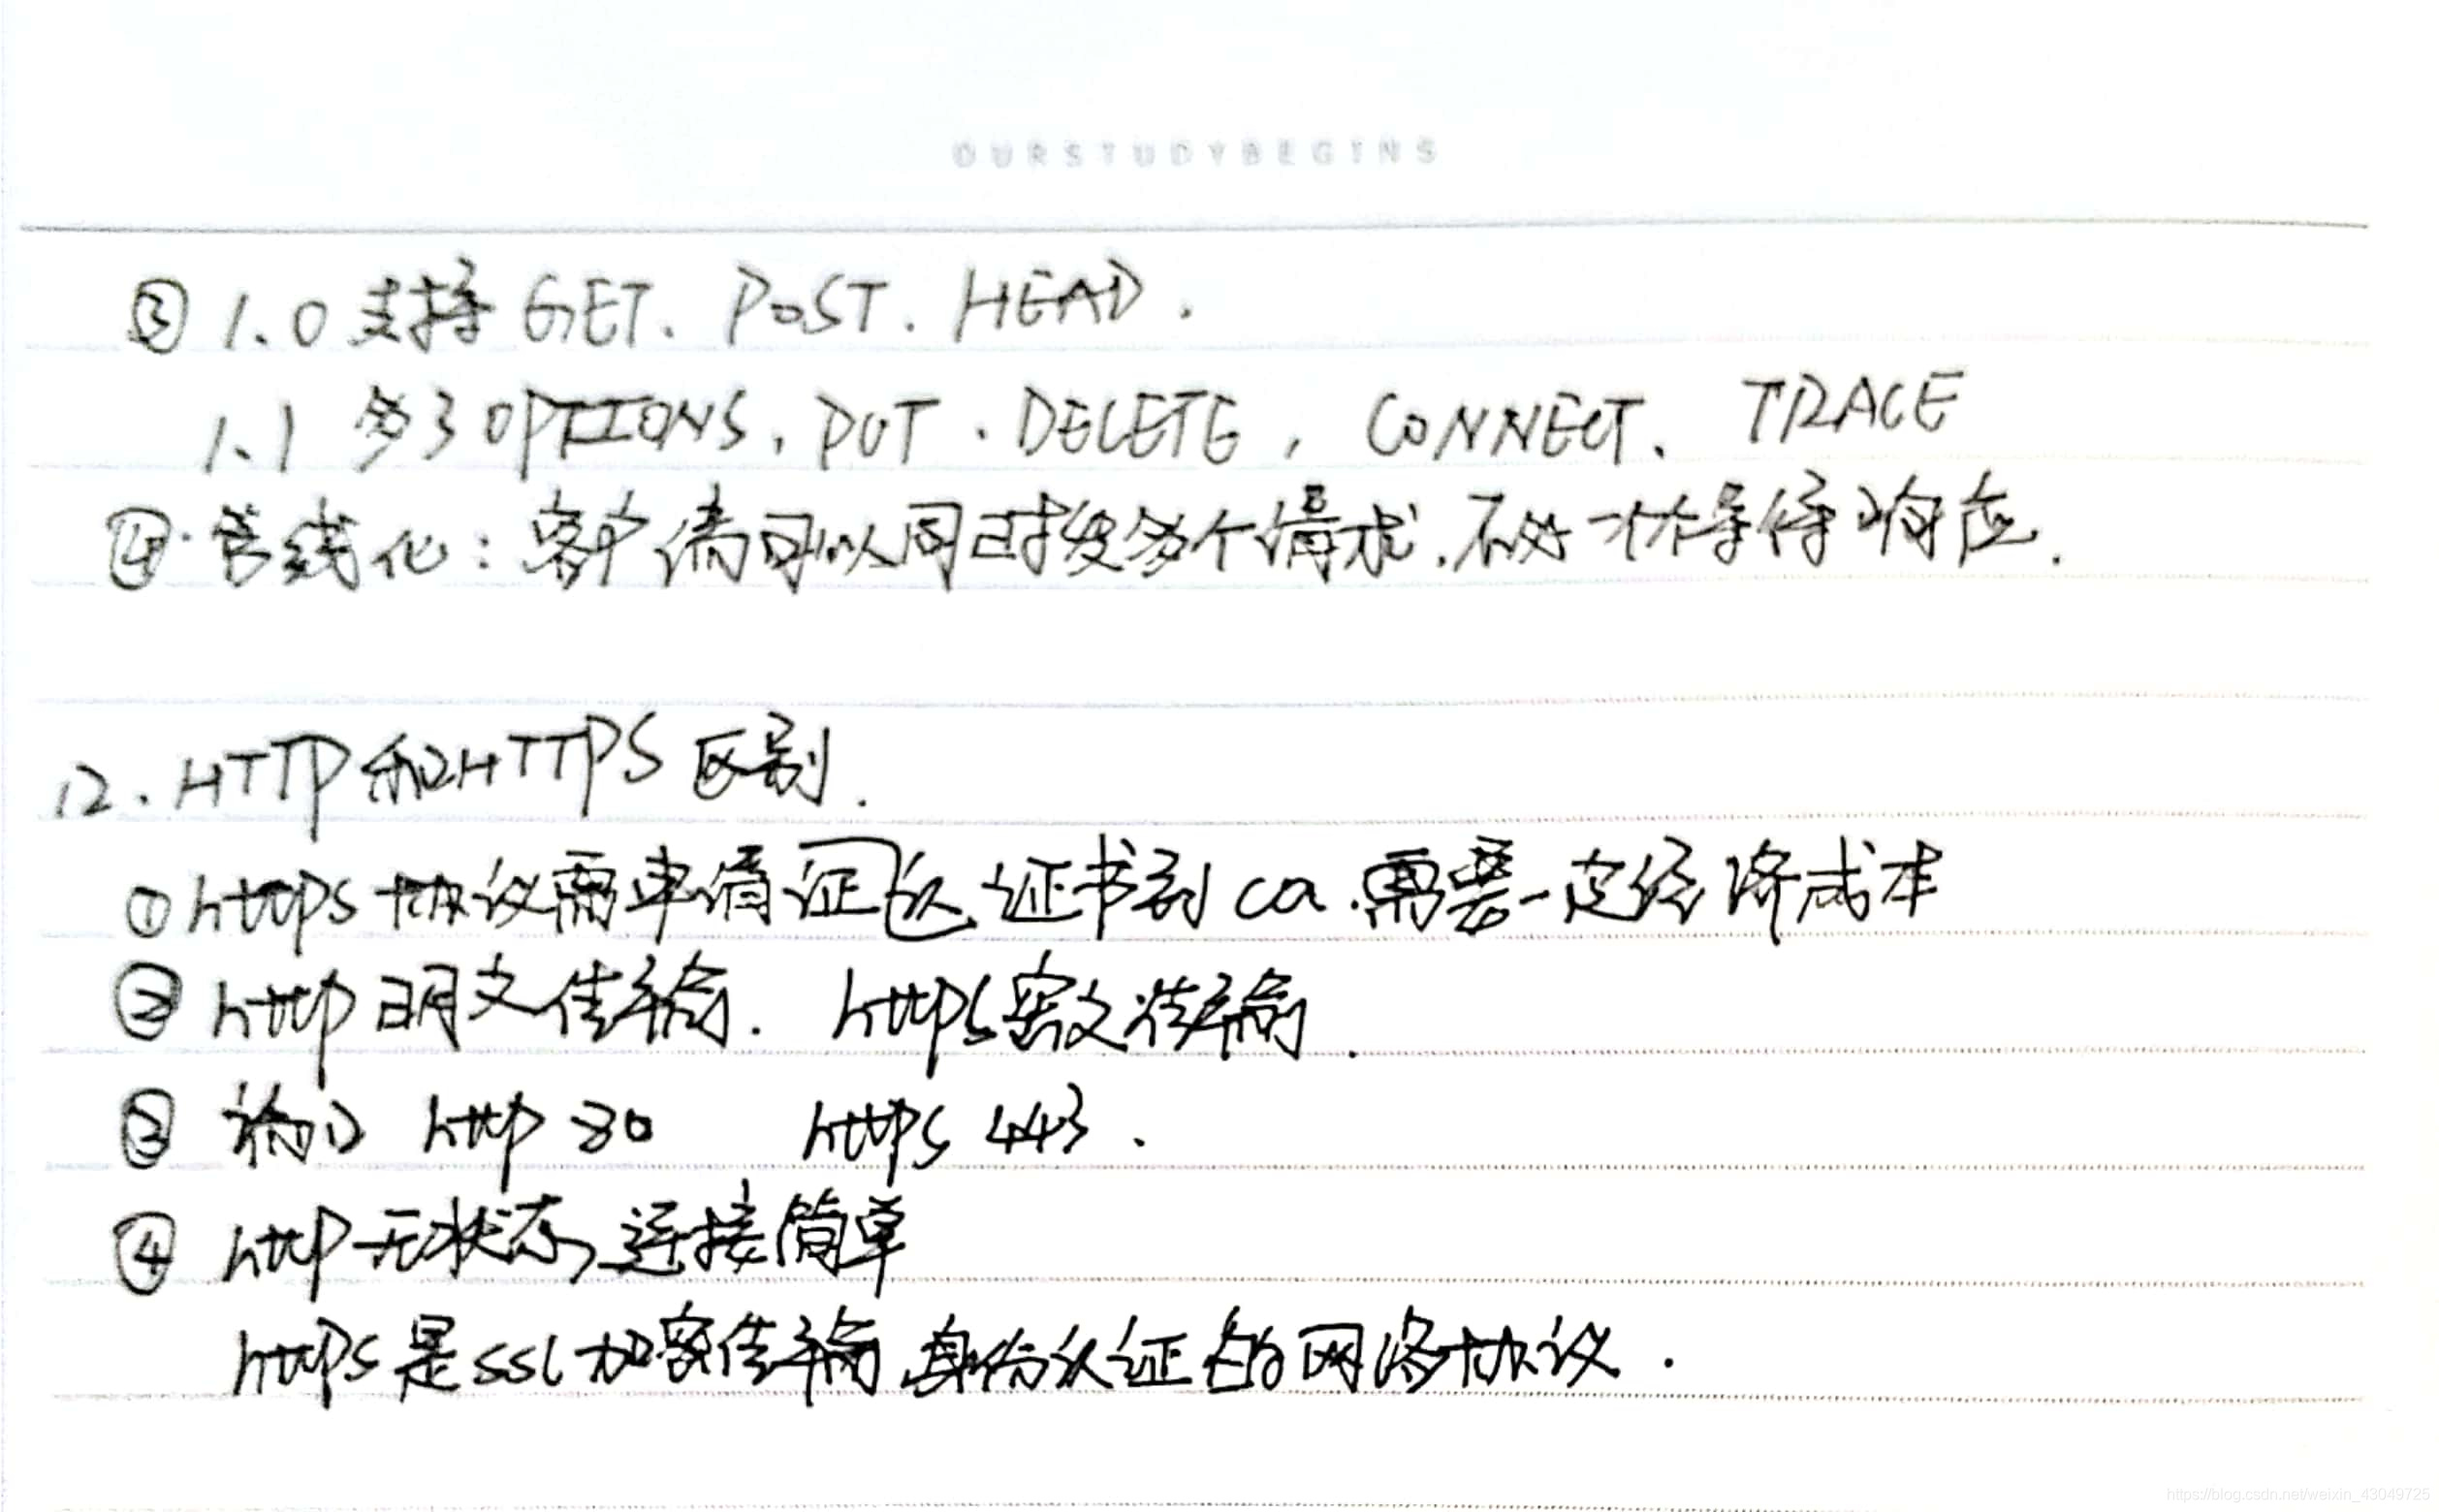 OURSTUDYBEGINS
③ 1.0支持 GET、POST、HEAD.
1.1 多了OPTIONS、PUT、DELETE, CONNECT、TRACE
④ 管线化：客户请可以同时发多个请求.不必 等待响应.
12.HTTP和HTTPS区别.
①https协议需申请证 认证书到ca.需要一定经济成本
② http 明文传输. https密文传输.
③ 端口 http 80 https 443.
④ http无状态,连接简单
https是ssl加密传输、身份认证的网络协议.
https://blog.csdn.net/weixin_43049725